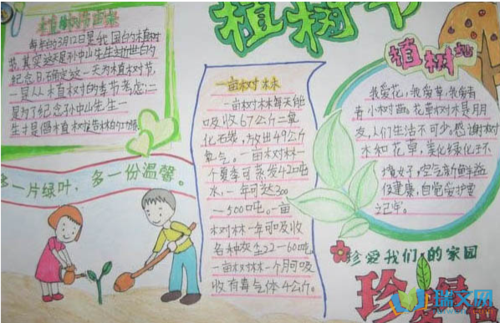 植树节
植树节的由来
每年的3月12日是我国的植树
节,其实这天是孙中山先生逝世的
纪念日,确定这一天为植树节,
一是从植树的季节考虑;二
是为了纪念孙中山先生
多一片绿叶,多一份温馨。
一亩树林
一亩树林每天能
吸收67公斤二氧
化碳,放出49公斤
氧气。一亩树林一
个夏季可蒸发42吨
水,一年可达300
—500吨。一亩
树林一年可吸收
各种灰尘22—60吨
一亩树林一个月可吸
收有毒气体4公斤。
植树
我爱花,我爱草,我每看
着小树苗。花草树木是朋
友,人们生活不可少。感谢树
木和花草,美化绿化环
境好,空气新鲜益
健康,自觉爱护
记牢。
珍爱我们的家园
珍爱绿